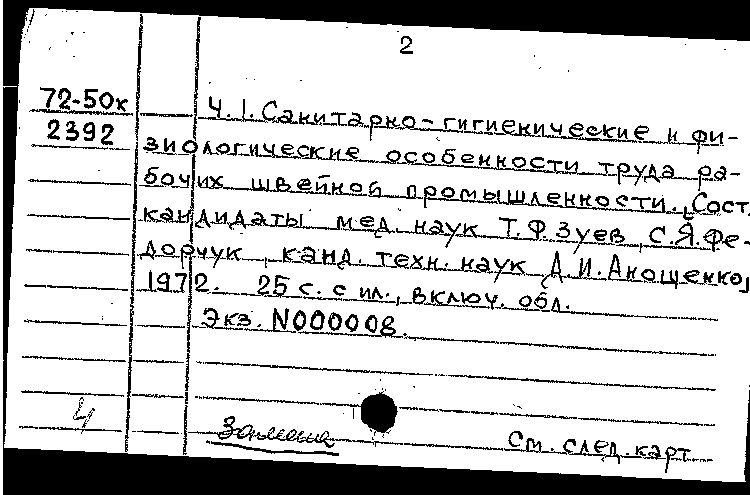 2
72-50к Ч.1. Санитарно-гигиенические и фи-
2392 зиологические особенности труда ра-
бочих швейной промышленности. [Сост.
кандидаты мед. наук Т.Ф.Зуев, С.Я.Фе-
дорчук, канд. техн. наук А.И.Анощенко,
1972. 25 с. с ил., включ. обл.
Экз. N000008.
4
См. след. карт